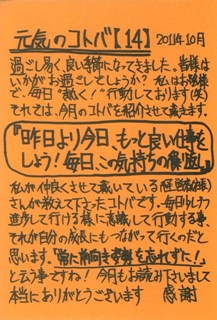 元気のコトバ【14】 2011年10月
過ごし易く良い季節になってきました。皆様は
いかがお過ごしでしょうか？私はお陰様
で、毎日"熱く！"行動しております(笑)
それでは、今月のコトバを紹介させて戴きます。
『昨日より今日、もっと良い仕事を
しよう！毎日、この気持ちの復返』
私が仲良くさせて戴いている
さんが教えて下さったコトバです。毎日少しづつ
進歩して行ける様に意識して行動する事、
それが自分の成長にもつながって行くのだと
思います。『常に前向き を忘れずに！』
と云う事ですね！今月もお読み下さいまして
本当にありがとうございます 感謝